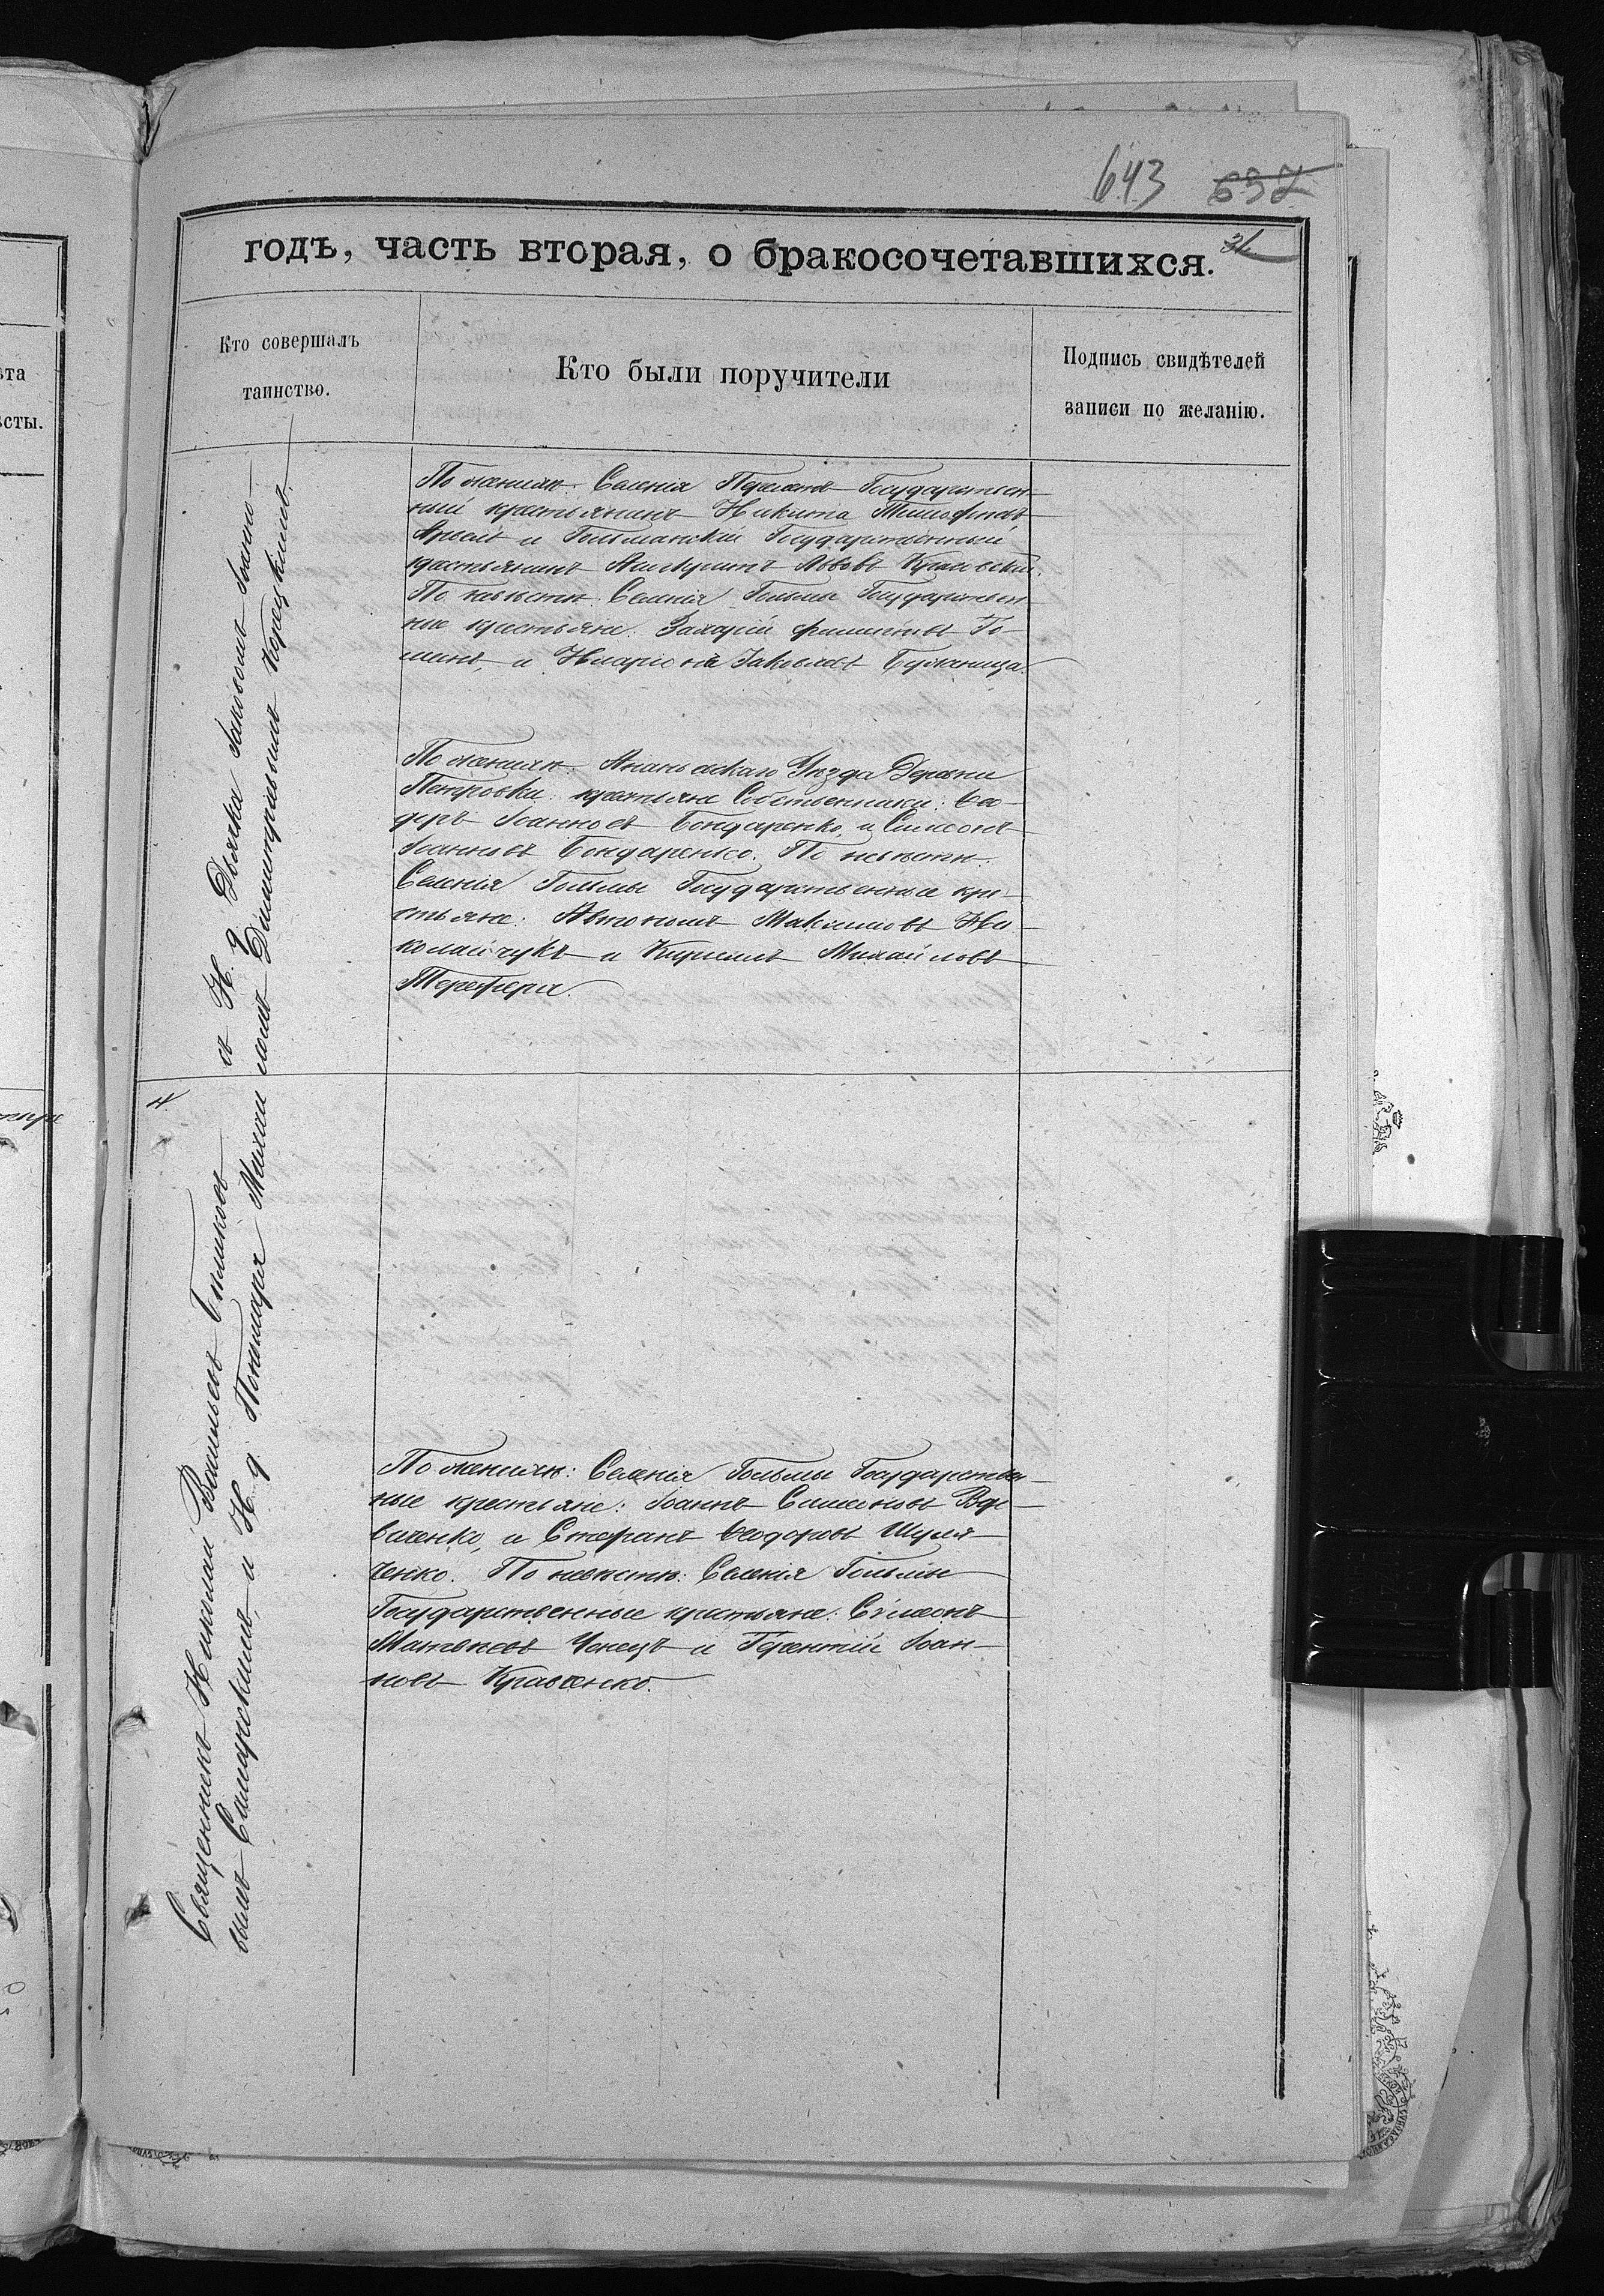 643 632
годъ, часть вторая, о бракосочетавшихся.
Кто совершалъ
таинство.
Кто были поручители
Подпись свидѣтелей
записи по желанію.
Священникъ Николай Васильевъ Биликовъ съ И. д. Дьячка Іаковомъ Іоанно-
вымъ Самарскимъ, и И. д. Пономаря Михаиломъ Димитріевымъ Керецкимъ.
По женихѣ: Селенія Государствен-
ный крестьянинъ Никита
и Гольманскій Государственный
крестьянинъ
По невѣстѣ: Селенія Гольмы Государствен-
ные крестьяне: Захарій Филиповъ Го-
и Иларіонъ Іаковлевъ
По женихѣ: Ананьевскаго Уѣзда Деревни
Петровки: крестьяне Собственники: Ѳео-
доръ Іоанновъ Бондаренко, и Симеонъ
Іоанновъ Бондаренко. По невѣстѣ:
Селенія Гольмы Государственные кре-
стьяне: Автономъ Максимовъ Ни-
колайчукъ и Кириллъ Михайловъ
По женихѣ: Селенія Гольмы Государствен-
ные крестьяне: Іоаннъ Симеоновъ Вдо-
виченко, и Стефанъ Ѳеодоровъ Шуля-
ченко. По невѣстѣ: Селенія Гольмы
Государственные крестьяне: Сѵмеонъ
Матвѣевъ Ченецъ и Терентій Іоан-
новъ Кравченко.